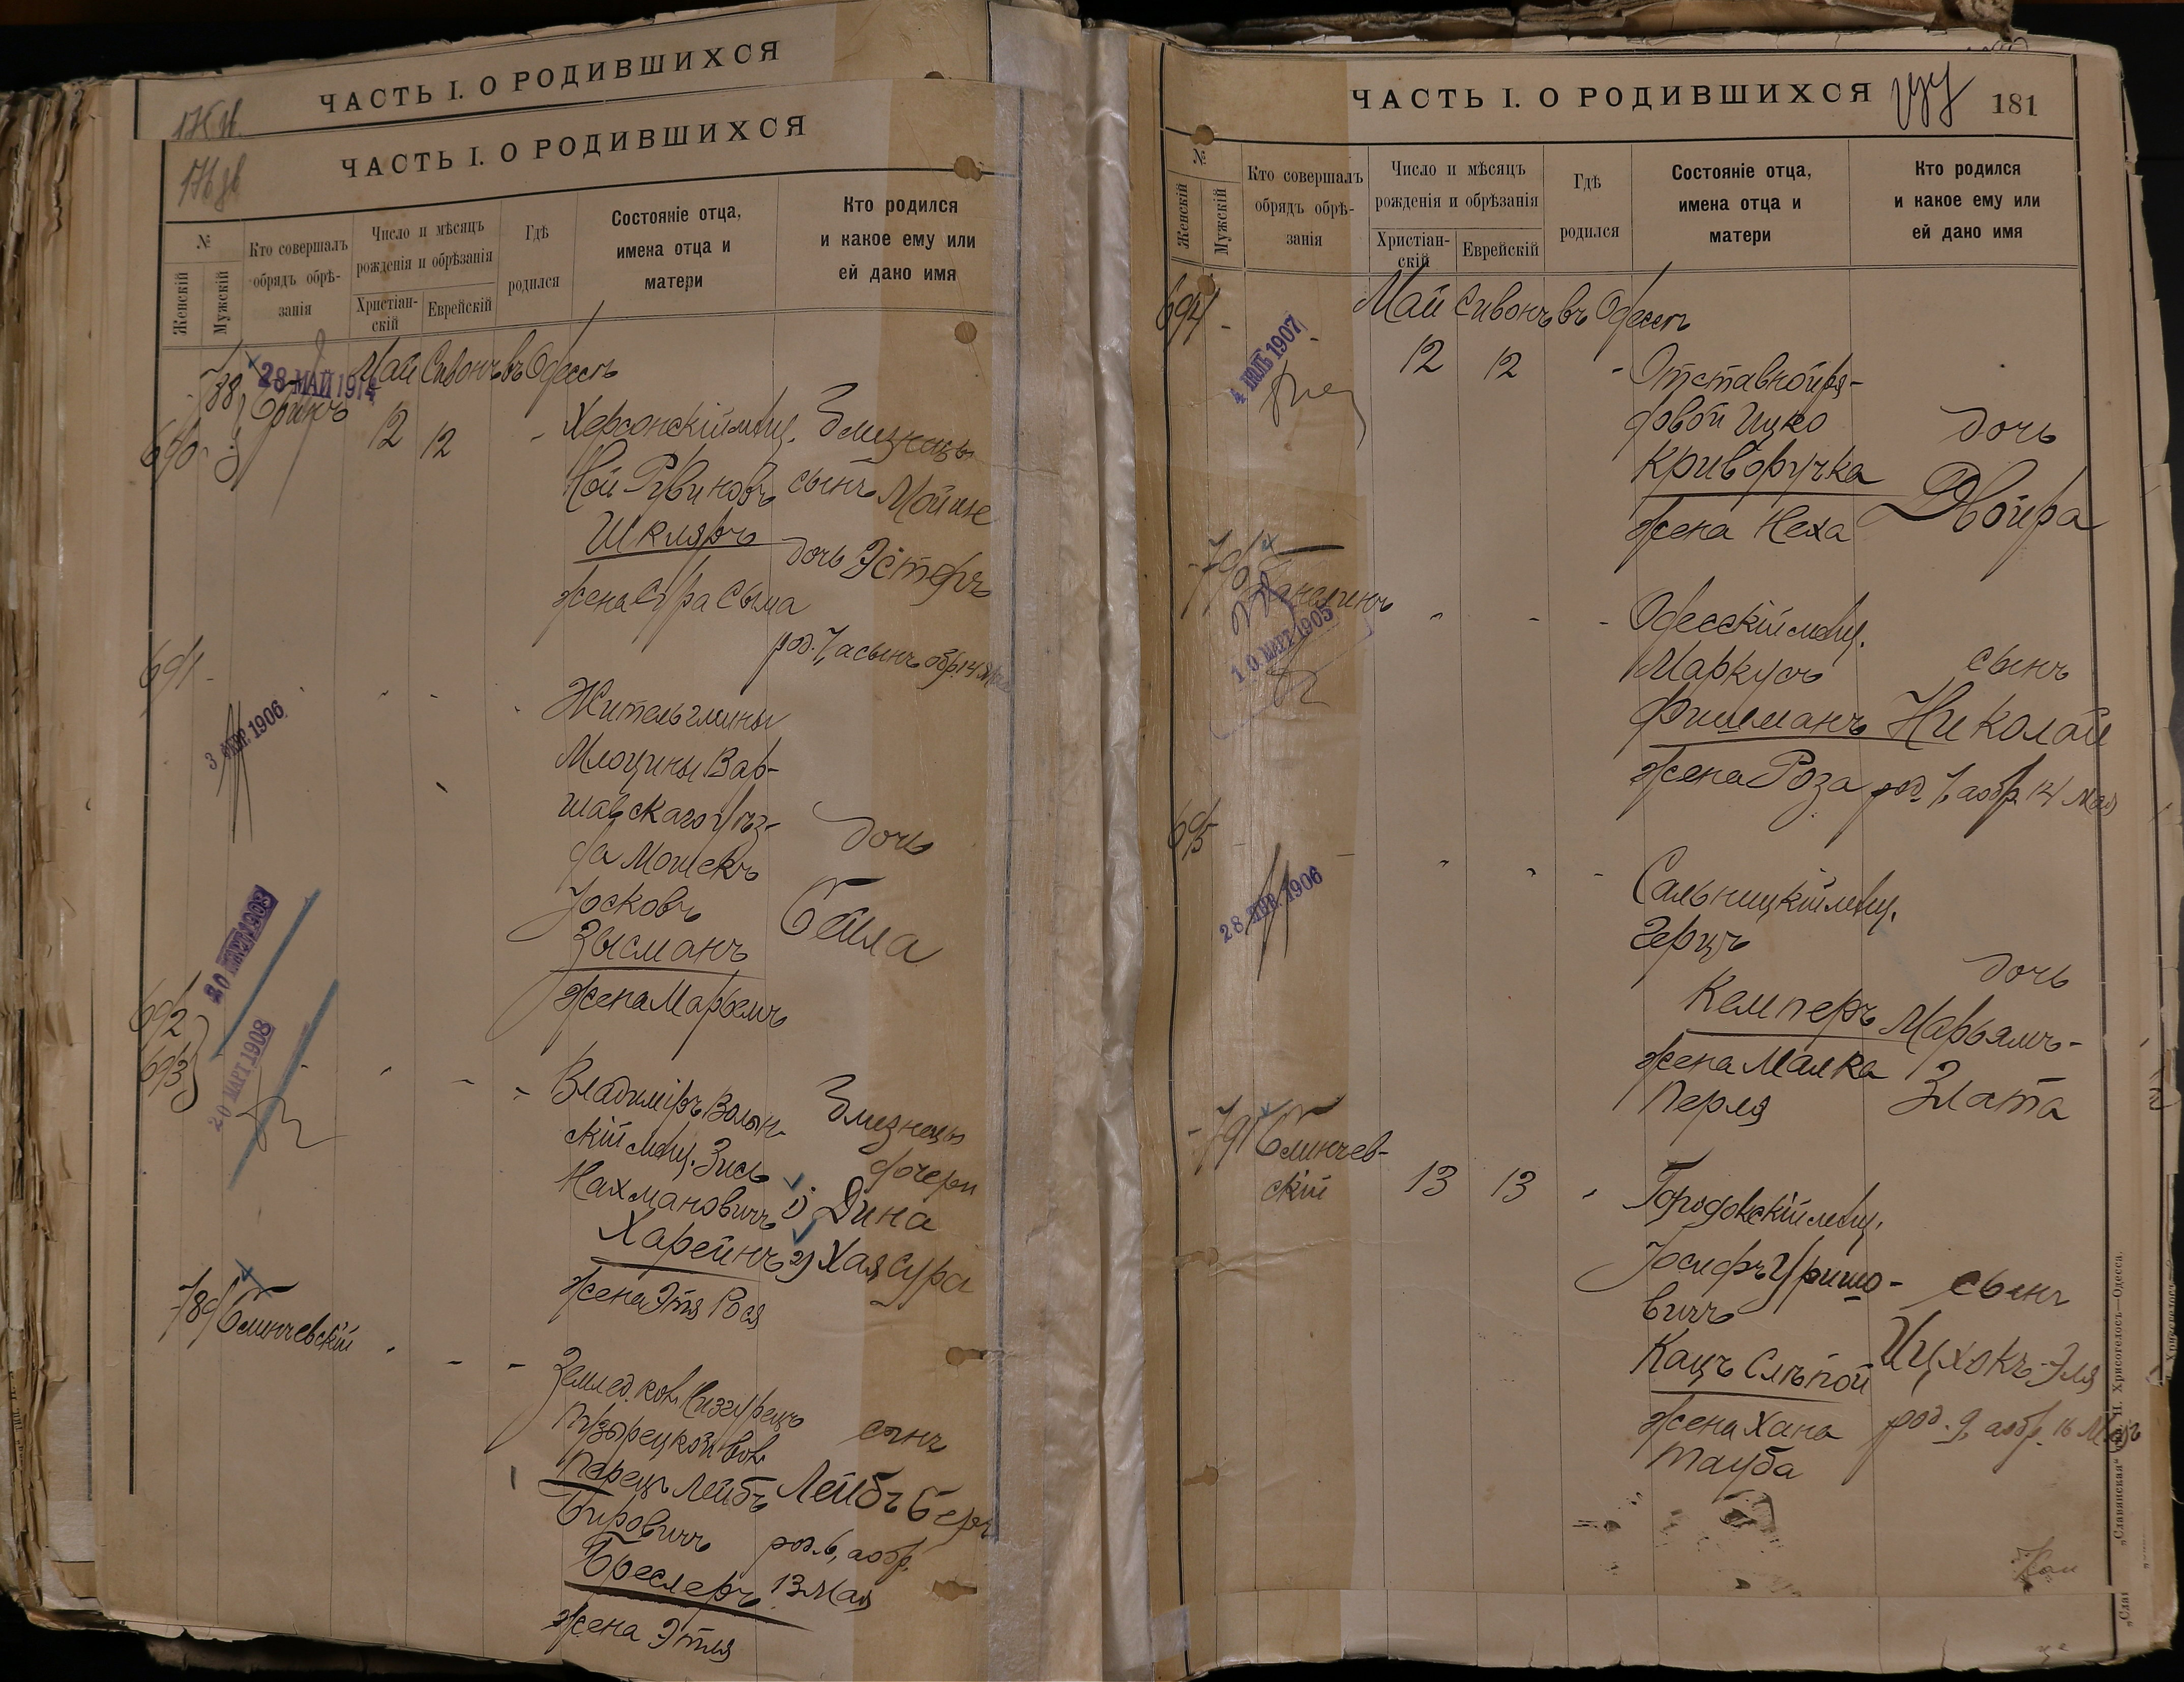 ЧАСТЬ I. О РОДИВШИХСЯ
ЧАСТЬ I. О РОДИВШИХСЯ
№
Женскій
Мужскій
Кто совершалъ
обрядъ обрѣ-
занія
Число и мѣсяцъ
рожденія и обрѣзанія
Христіан-
скій
Еврейскій
Гдѣ
родился
Состояніе отца,
имена отца и
матери
Кто родился
и какое ему или
ей дано имя
Май Сивонъ въ Одессѣ
788
28 МАЙ 1914
690
12
12
Херсонскій мѣщ.
Ной Рувиновъ
Шкляръ
жена Сура Сыма
Близнецы
сынъ Мойше
дочь Эстеръ
род. 7, а сынъ обр. 14 Мая
691
3 АПР. 1906
Житель гмины
Млоцины Вар-
шавскаго уѣз-
да Мошекъ
Іосковъ
Зысманъ
жена Марьемъ
дочь
Бейла
692
693
20 МАРТ 1908
20 МАРТ 1908
Владиміръ Волын-
скій мѣщ. Зись
Нахмановичъ
Харейнъ
жена Этя Рося
Близнецы
дочери
1) Дина
2) Хая Сура
789
Блинчевскій
Землед. кол.
Перецъ Лейбъ
Бировичъ
Бреслеръ
жена Этля
сынъ
Лейбъ Беръ
род. 6, а обр.
13 Мая
ЧАСТЬ I. О РОДИВШИХСЯ
181
№
Женскій
Мужскій
Кто совершалъ
обрядъ обрѣ-
занія
Число и мѣсяцъ
рожденія и обрѣзанія
Христіан-
скій
Еврейскій
Гдѣ
родился
Состояніе отца,
имена отца и
матери
Кто родился
и какое ему или
ей дано имя
Май Сивонъ въ Одессѣ
694
4 ІЮЛЬ 1907
12
12
Отставной ря-
довой Ицко
Криворучка
жена Неха
дочь
Двойра
790
10 МАРТ 1905
Одесскій мѣщ.
Маркусъ
Фишманъ
жена Роза
сынъ
Николай
род. 7, а обр. 14 Мая
695
28 АПР. 1906
Сальницкій мѣщ.
Герцъ
Кемперъ
жена Малка
Перля
дочь
Марьямъ-
Злата
791
Блинчев-
скій
13
13
Городокскій мѣщ.
Іосифъ Уришо-
вичъ
Кацъ Слѣпой
жена Хана
Тауба
сынъ
Ицхокъ-Эля
род. 9, а обр. 16 Мая
„Славянская“ тип. Н. Хрисогелосъ—Одесса.